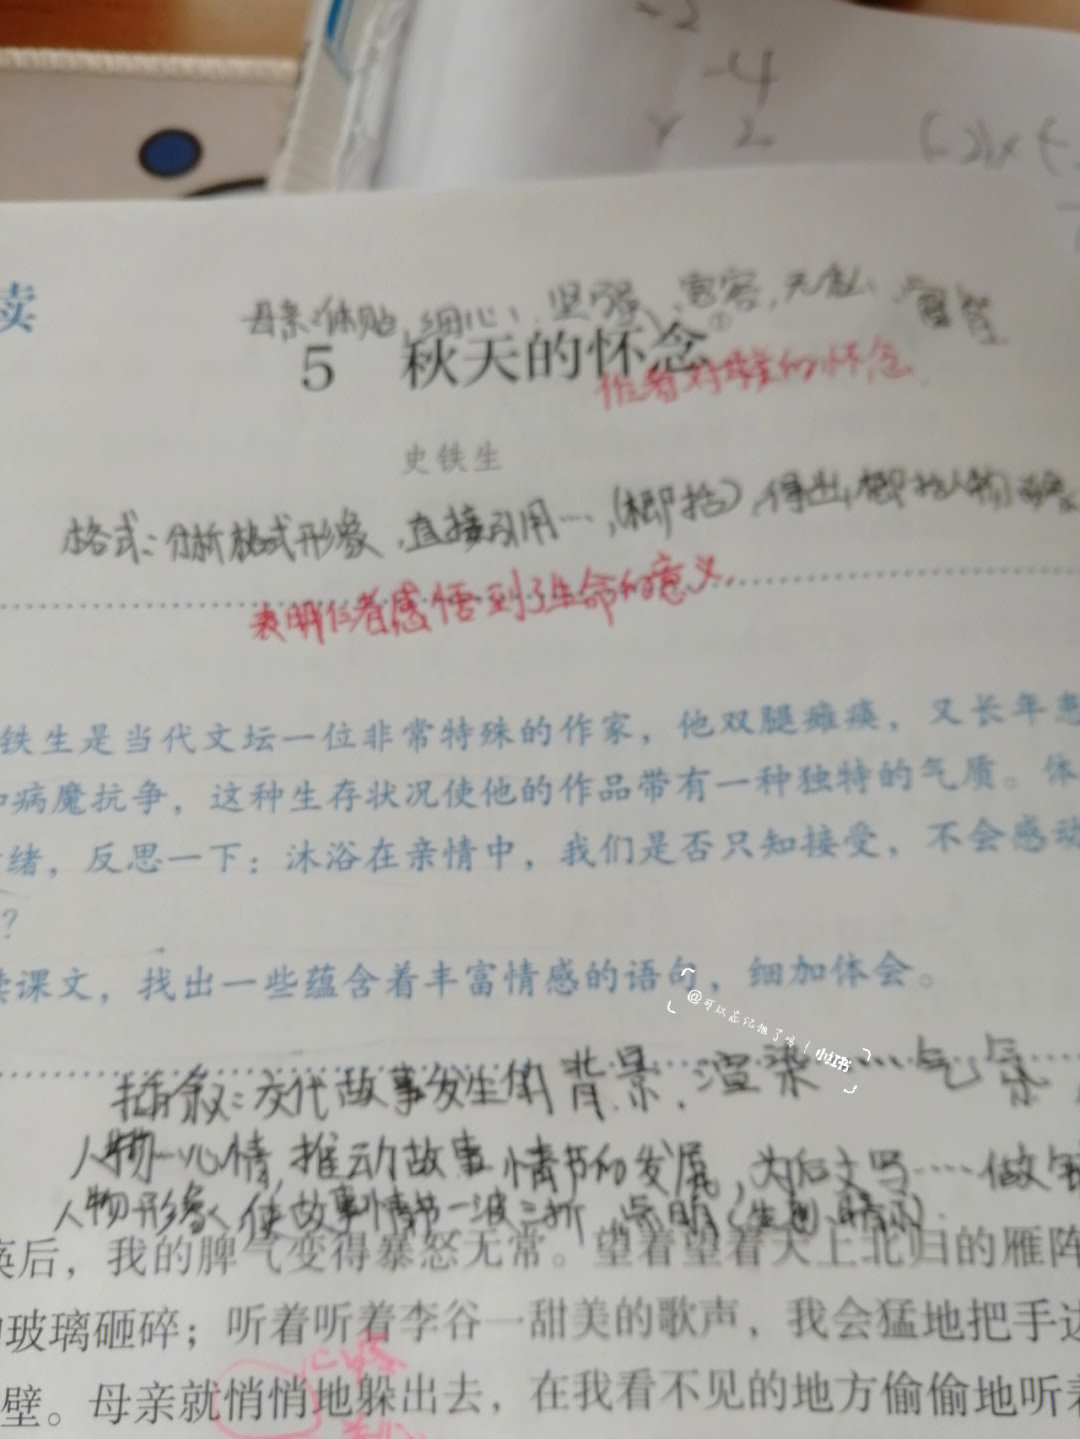 -2
-4
× 2
读
母亲:体贴,细心,坚强,宽容,无私,
5 秋天的怀念①
作者对母亲的怀念.
史铁生
格式:分析格式形象,直接引用…,(概括),得出,概括人物形象
表明作者感悟到了生命的意义.
铁生是当代文坛一位非常特殊的作家,他双腿瘫痪,又长年患
和病魔抗争,这种生存状况使他的作品带有一种独特的气质。体
绪,反思一下:沐浴在亲情中,我们是否只知接受,不会感动
?
读课文,找出一些蕴含着丰富情感的语句,细加体会。
@可以忘记他了吗
小红书
插叙:交代故事发生的背景,渲染…气氛
人物…心情,推动故事情节的发展,为后文写……做铺
人物形象,使故事情节一波三折,点明(主题)
痪后,我的脾气变得暴怒无常。望着望着天上北归的雁阵
的玻璃砸碎;听着听着李谷一甜美的歌声,我会猛地把手边
壁。母亲就悄悄地躲出去,在我看不见的地方偷偷地听着